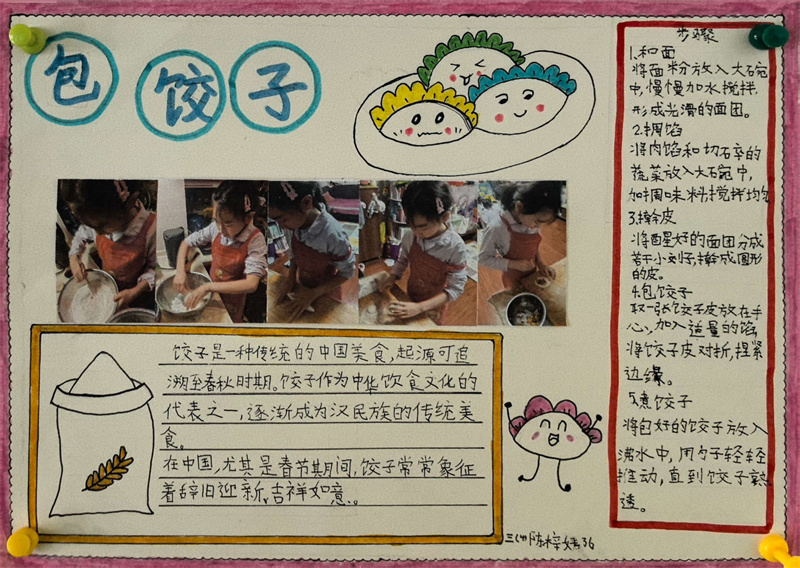 包饺子
饺子是一种传统的中国美食,起源可追
溯至春秋时期。饺子作为中华饮食文化的
代表之一,逐渐成为汉民族的传统美
食。
在中国,尤其是春节期间,饺子常常象征
着辞旧迎新、吉祥如意。
步骤
1.和面
将面粉放入大碗
中,慢慢加水搅拌,
形成光滑的面团。
2.调馅
将肉馅和切碎的
蔬菜放入大碗中,
加调味料搅拌均匀
3.擀皮
将醒好的面团分成
若干小剂子擀成圆形
的皮。
4.包饺子
取一张饺子皮放在手
心,加入适量的馅,
将饺子皮对折,捏紧
边缘。
5.煮饺子
将包好的饺子放入
沸水中,用勺子轻轻
推动,直到饺子熟
透。
陈梓 36